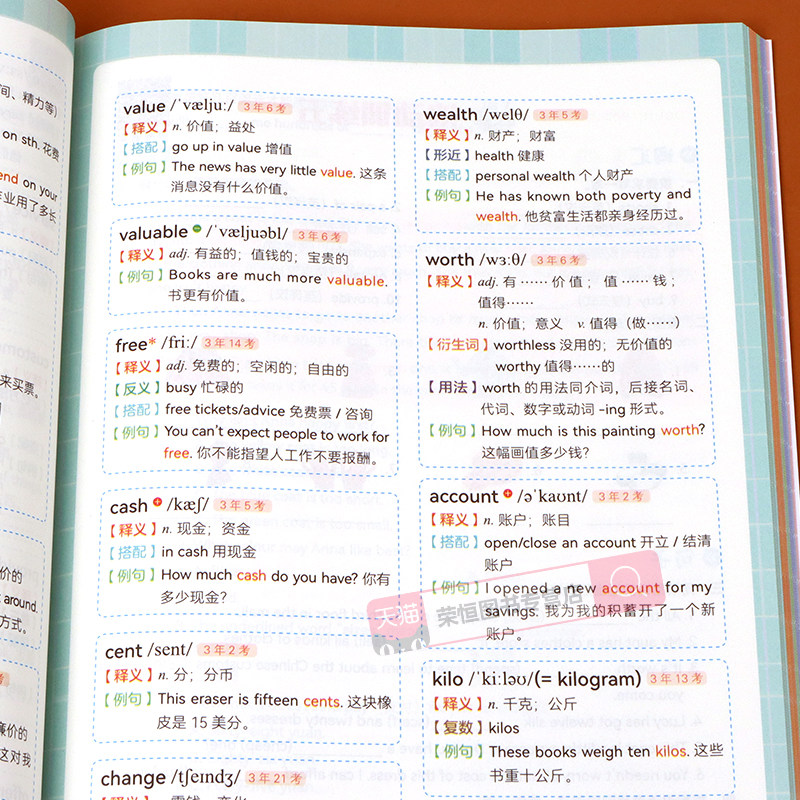 间、精力等）
on sth. 花费
end on your
作业用了多长
来买票。
价的
around.
方式。
廉价的
这对我
value /ˈvæljuː/ 3年6考
【释义】n. 价值；益处
【搭配】go up in value 增值
【例句】The news has very little value. 这条
消息没有什么价值。
valuable /ˈvæljuəbl/ 3年6考
【释义】adj. 有益的；值钱的；宝贵的
【例句】Books are much more valuable.
书更有价值。
free* /friː/ 3年14考
【释义】adj. 免费的；空闲的；自由的
【反义】busy 忙碌的
【搭配】free tickets/advice 免费票 / 咨询
【例句】You can't expect people to work for
free. 你不能指望人工作不要报酬。
cash /kæʃ/ 3年5考
【释义】n. 现金；资金
【搭配】in cash 用现金
【例句】How much cash do you have? 你有
多少现金？
cent /sent/ 3年2考
【释义】n. 分；分币
【例句】This eraser is fifteen cents. 这块橡
皮是 15 美分。
change /tʃeɪndʒ/ 3年21考
wealth /welθ/ 3年5考
【释义】n. 财产；财富
【形近】health 健康
【搭配】personal wealth 个人财产
【例句】He has known both poverty and
wealth. 他贫富生活都亲身经历过。
worth /wɜːθ/ 3年6考
【释义】adj. 有……价值；值……钱；
值得……
n. 价值；意义 v. 值得（做……）
【衍生词】worthless 没用的；无价值的
worthy 值得……的
【用法】worth 的用法同介词，后接名词、
代词、数字或动词 -ing 形式。
【例句】How much is this painting worth?
这幅画值多少钱？
account /əˈkaʊnt/ 3年2考
【释义】n. 账户；账目
【搭配】open/close an account 开立 / 结清
账户
【例句】I opened a new account for my
savings. 我为我的积蓄开了一个新
账户。
kilo /ˈkiːləʊ/(= kilogram) 3年13考
【释义】n. 千克；公斤
【复数】kilos
【例句】These books weigh ten kilos. 这些
书重十公斤。
天猫 荣恒图书专营店